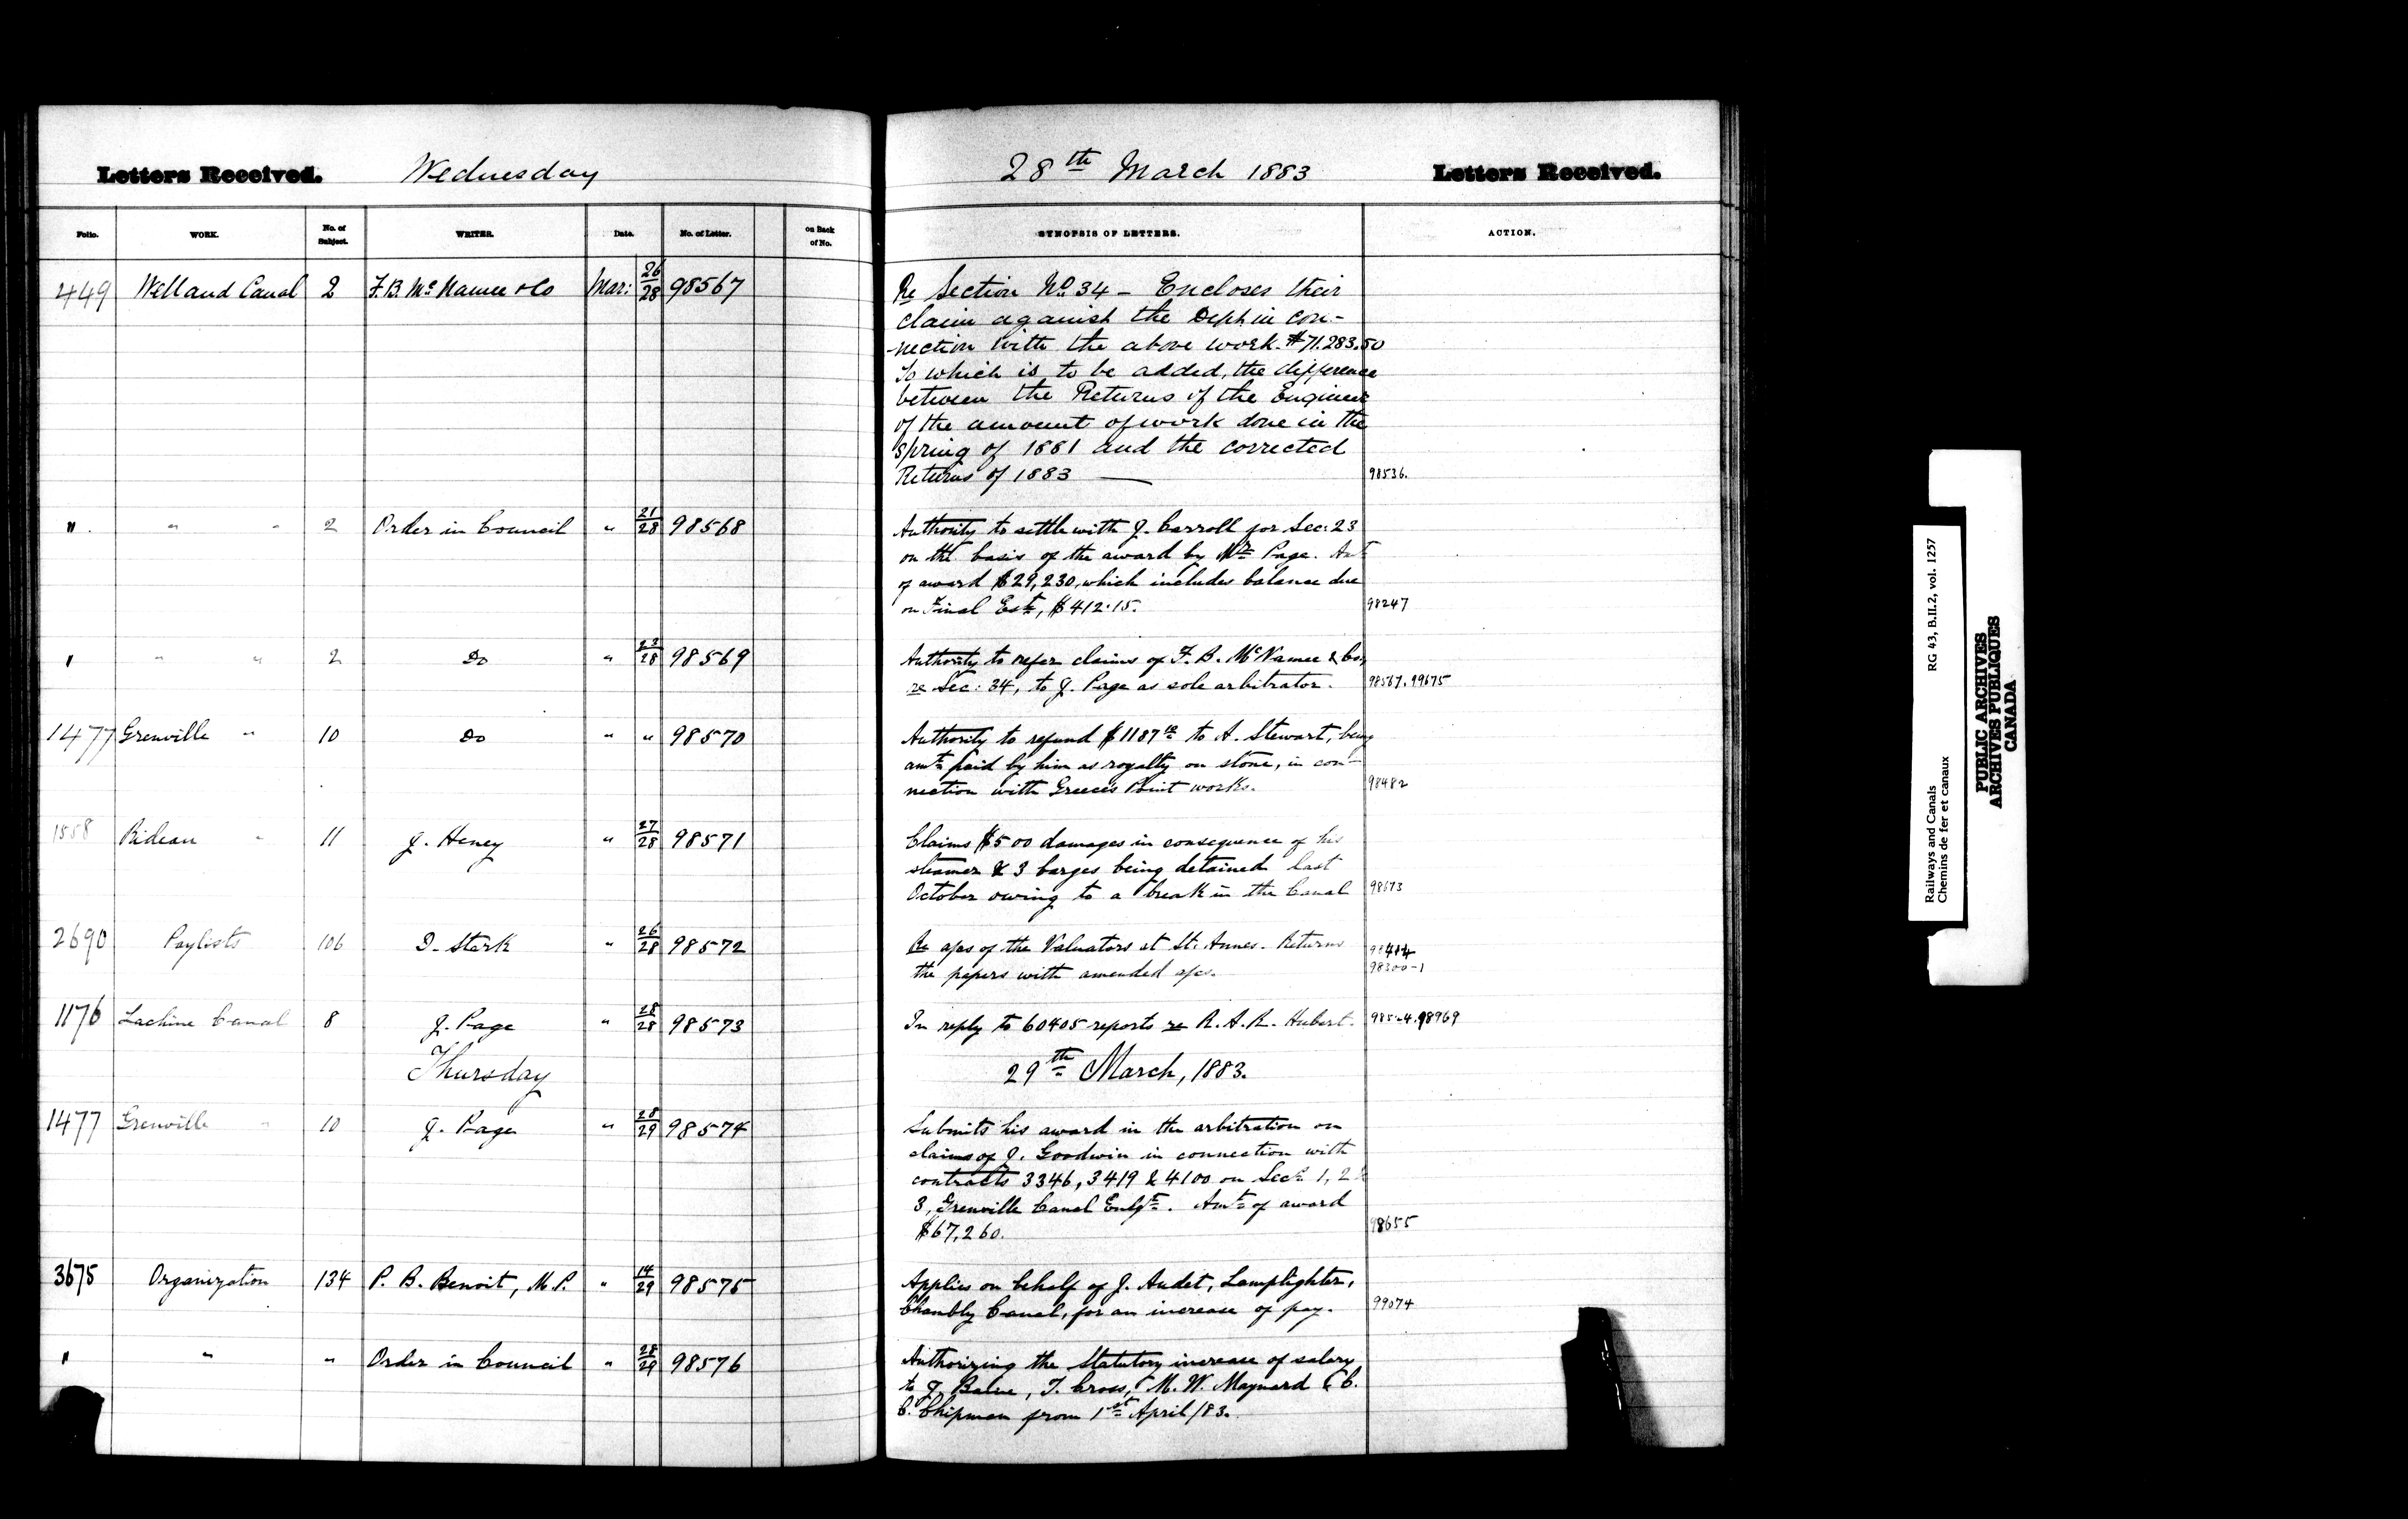 Letters Received. Wednesday 28th March 1883 Letters Received.
Folio. WORK. No. of Subject. WRITER. Date. No. of Letter. on Back of No. SYNOPSIS OF LETTERS. ACTION.
449 Welland Canal 2 F. B. McNamee & Co Mar: 26/28 98567 Re Section No 34 – Encloses their
claim against the Dept. in con-
nection with the above work. $71.283.50
To which is to be added, the difference
between the Returns of the Engineer
of the amount of work done in the
Spring of 1881 and the corrected
Returns of 1883 — 98536.
" " " 2 Order in Council " 21/28 98568 Authority to settle with J. Carroll for Sec: 23
on the basis of the award by Mr Page. Amt
of award $29,230, which includes balance due
on Final Est, $412.15. 98247
" " " 2 Do " 23/28 98569 Authority to refer claims of F. B. McNamee & Co,
re Sec: 34, to J. Page as sole arbitrator. 98567. 99675
1477 Grenville " 10 Do " " 98570 Authority to refund $1187 to A. Stewart, being
amt paid by him as royalty on stone, in con-
nection with Greece's Point works. 98482
1558 Rideau " 11 J. Heney " 27/28 98571 Claims $500 damages in consequence of his
steamer & 3 barges being detained last
October owing to a break in the Canal 98673
2690 Paylists 106 D. Stark " 26/28 98572 Re a/cs of the Valuators at St. Annes. Returns
the papers with amended a/cs. 98300-1
1176 Lachine Canal 8 J. Page " 28/28 98573 In reply to 60405 reports re R. A. R. Hubert. 98524. 98969
Thursday 29th March, 1883.
1477 Grenville " 10 J. Page " 28/29 98574 Submits his award in the arbitration on
claims of J. Goodwin in connection with
contracts 3346, 3419 & 4100 on Secs 1, 2 &
3, Grenville Canal Enlgt. Amt of award
$67,260. 98655
3675 Organization 134 P. B. Benoit, M.P. " 14/29 98575 Applies on behalf of J. Audet, Lamplighter,
Chambly Canal, for an increase of pay. 99074
" " " Order in Council " 28/29 98576 Authorizing the Statutory increase of salary
to J. Balne, T. Cross, M. W. Maynard & C.
C. Chipman from 1st April /83.
Railways and Canals RG 43, B.II.2, vol. 1257
Chemins de fer et canaux
PUBLIC ARCHIVES
ARCHIVES PUBLIQUES
CANADA